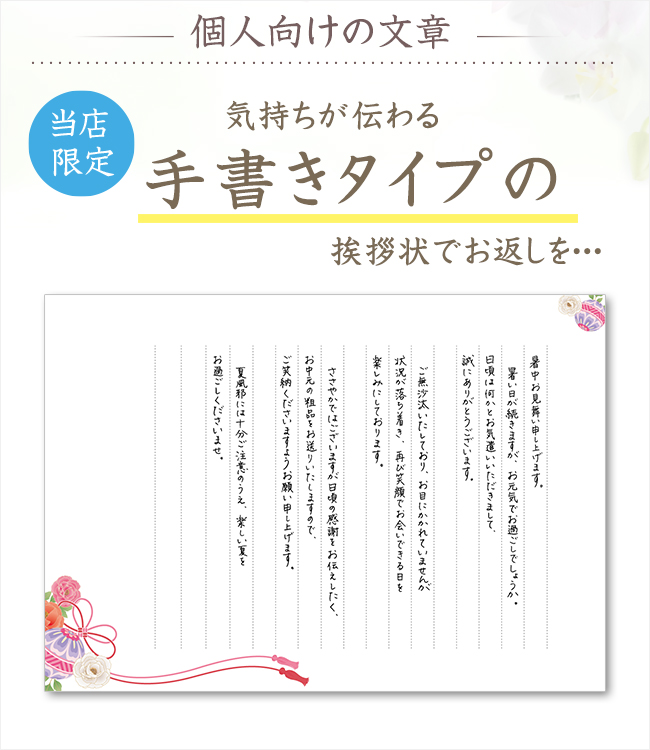 個人向けの文章
当店
限定
気持ちが伝わる
手書きタイプの
挨拶状でお返しを…
暑中お見舞い申し上げます。
暑い日が続きますが、お元気でお過ごしでしょうか。
日頃は何かとお気遣いいただきまして、
誠にありがとうございます。
ご無沙汰いたしており、お目にかかれていませんが
状況が落ち着き、再び笑顔でお会いできる日を
楽しみにしております。
ささやかではございますが日頃の感謝をお伝えしたく、
お中元の粗品をお送りいたしますので、
ご笑納くださいますようお願い申し上げます。
夏風邪には十分ご注意のうえ、楽しい夏を
お過ごしくださいませ。